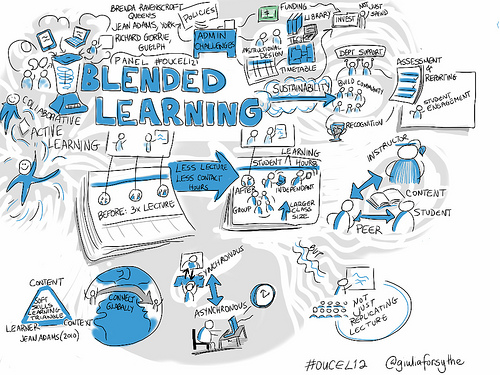 BRENDA RAVENSCROFT
QUEENS
JEAN ADAMS, YORK
RICHARD GORRIE,
GUELPH
PANEL #OUCEL12
POLICIES
ADMIN
CHALLENGES
$
FUNDING
LIBRARY
TECH
INSTRUCTIONAL
DESIGN
TIMETABLE
INVEST
NOT
JUST
SPEND
BLENDED
LEARNING
SUSTAINABILITY
DEPT SUPPORT
BUILD COMMUNITY
RECOGNITION
ASSESSMENT
&
REPORTING
STUDENT
ENGAGEMENT
COLLABORATIVE
ACTIVE
LEARNING
BEFORE: 3x LECTURE
LESS LECTURE
LESS CONTACT
HOURS
LEARNING
STUDENT HOURS
AFTER
INDEPENDANT
GROUP
LARGER
CLASS
SIZE
INSTRUCTOR
CONTENT
STUDENT
PEER
CONTENT
SOFT
SKILLS
LEARNING
TRIANGLE
LEARNER
CONTEXT
JEAN ADAMS (2010)
CONNECT
GLOBALLY
SYNCHRONOUS
ASYNCHRONOUS
BUT
NOT
JUST
REPLICATING
LECTURE
#OUCEL12
@giuliaforsythe